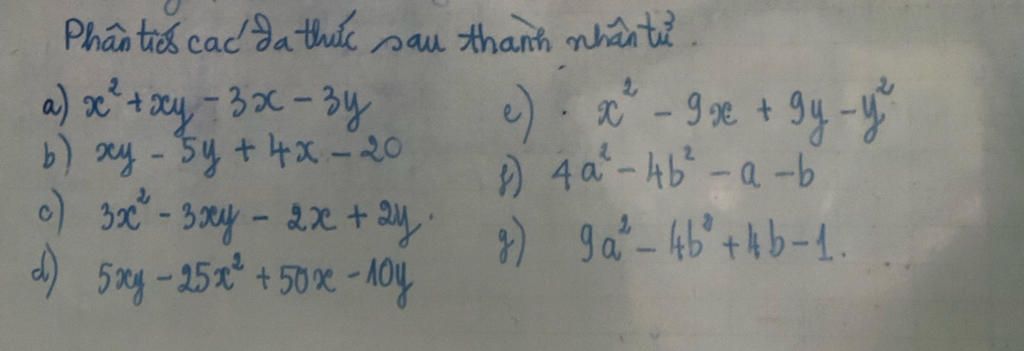 Phân tích các đa thức sau thành nhân tử.
a) x² + xy - 3x - 3y
b) xy - 5y + 4x - 20
c) 3x² - 3xy - 2x + 2y.
d) 5xy - 25x² + 50x - 10y
e) x² - 9x + 9y - y²
f) 4a² - 4b² - a - b
g) 9a² - 4b² + 4b - 1.